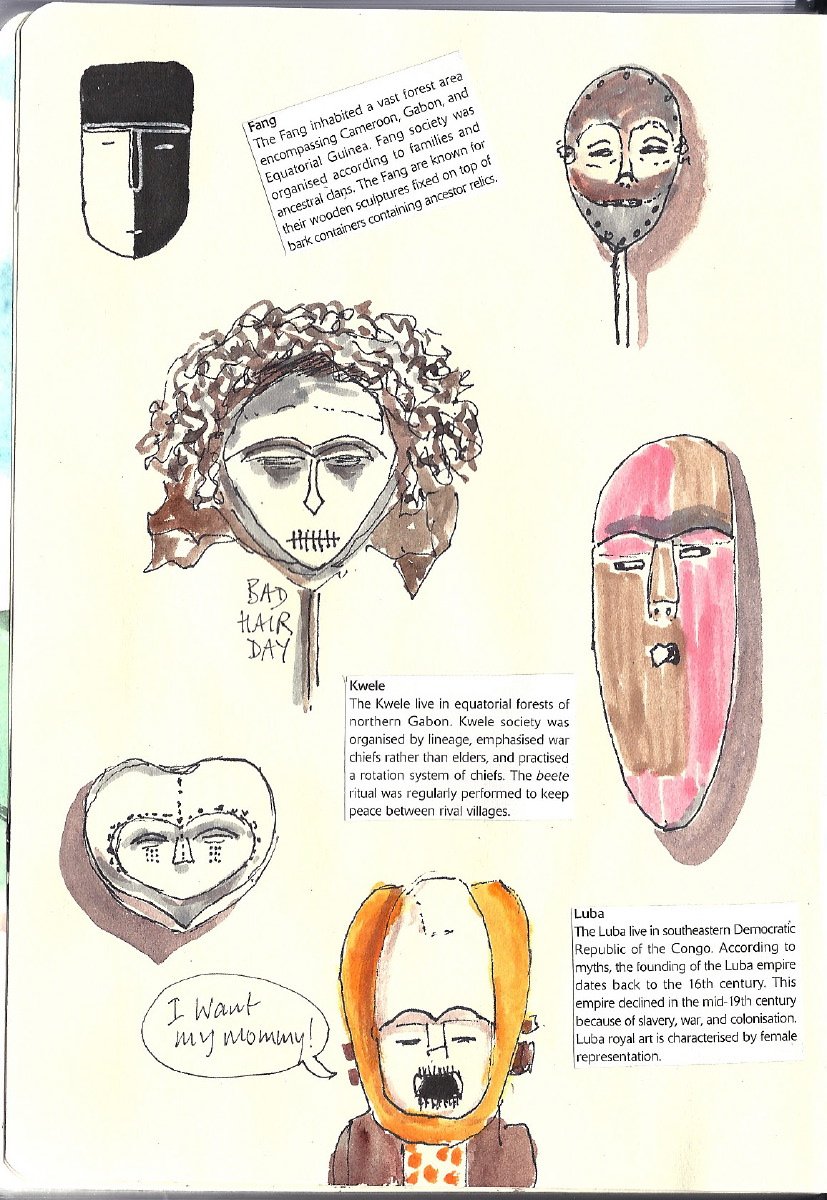 Fang
The Fang inhabited a vast forest area
encompassing Cameroon, Gabon, and
Equatorial Guinea. Fang society was
organised according to families and
ancestral clans. The Fang are known for
their wooden sculptures fixed on top of
bark containers containing ancestor relics.
BAD
HAIR
DAY
Kwele
The Kwele live in equatorial forests of
northern Gabon. Kwele society was
organised by lineage, emphasised war
chiefs rather than elders, and practised
a rotation system of chiefs. The beete
ritual was regularly performed to keep
peace between rival villages.
Luba
The Luba live in southeastern Democratic
Republic of the Congo. According to
myths, the founding of the Luba empire
dates back to the 16th century. This
empire declined in the mid-19th century
because of slavery, war, and colonisation.
Luba royal art is characterised by female
representation.
I Want
my mommy!